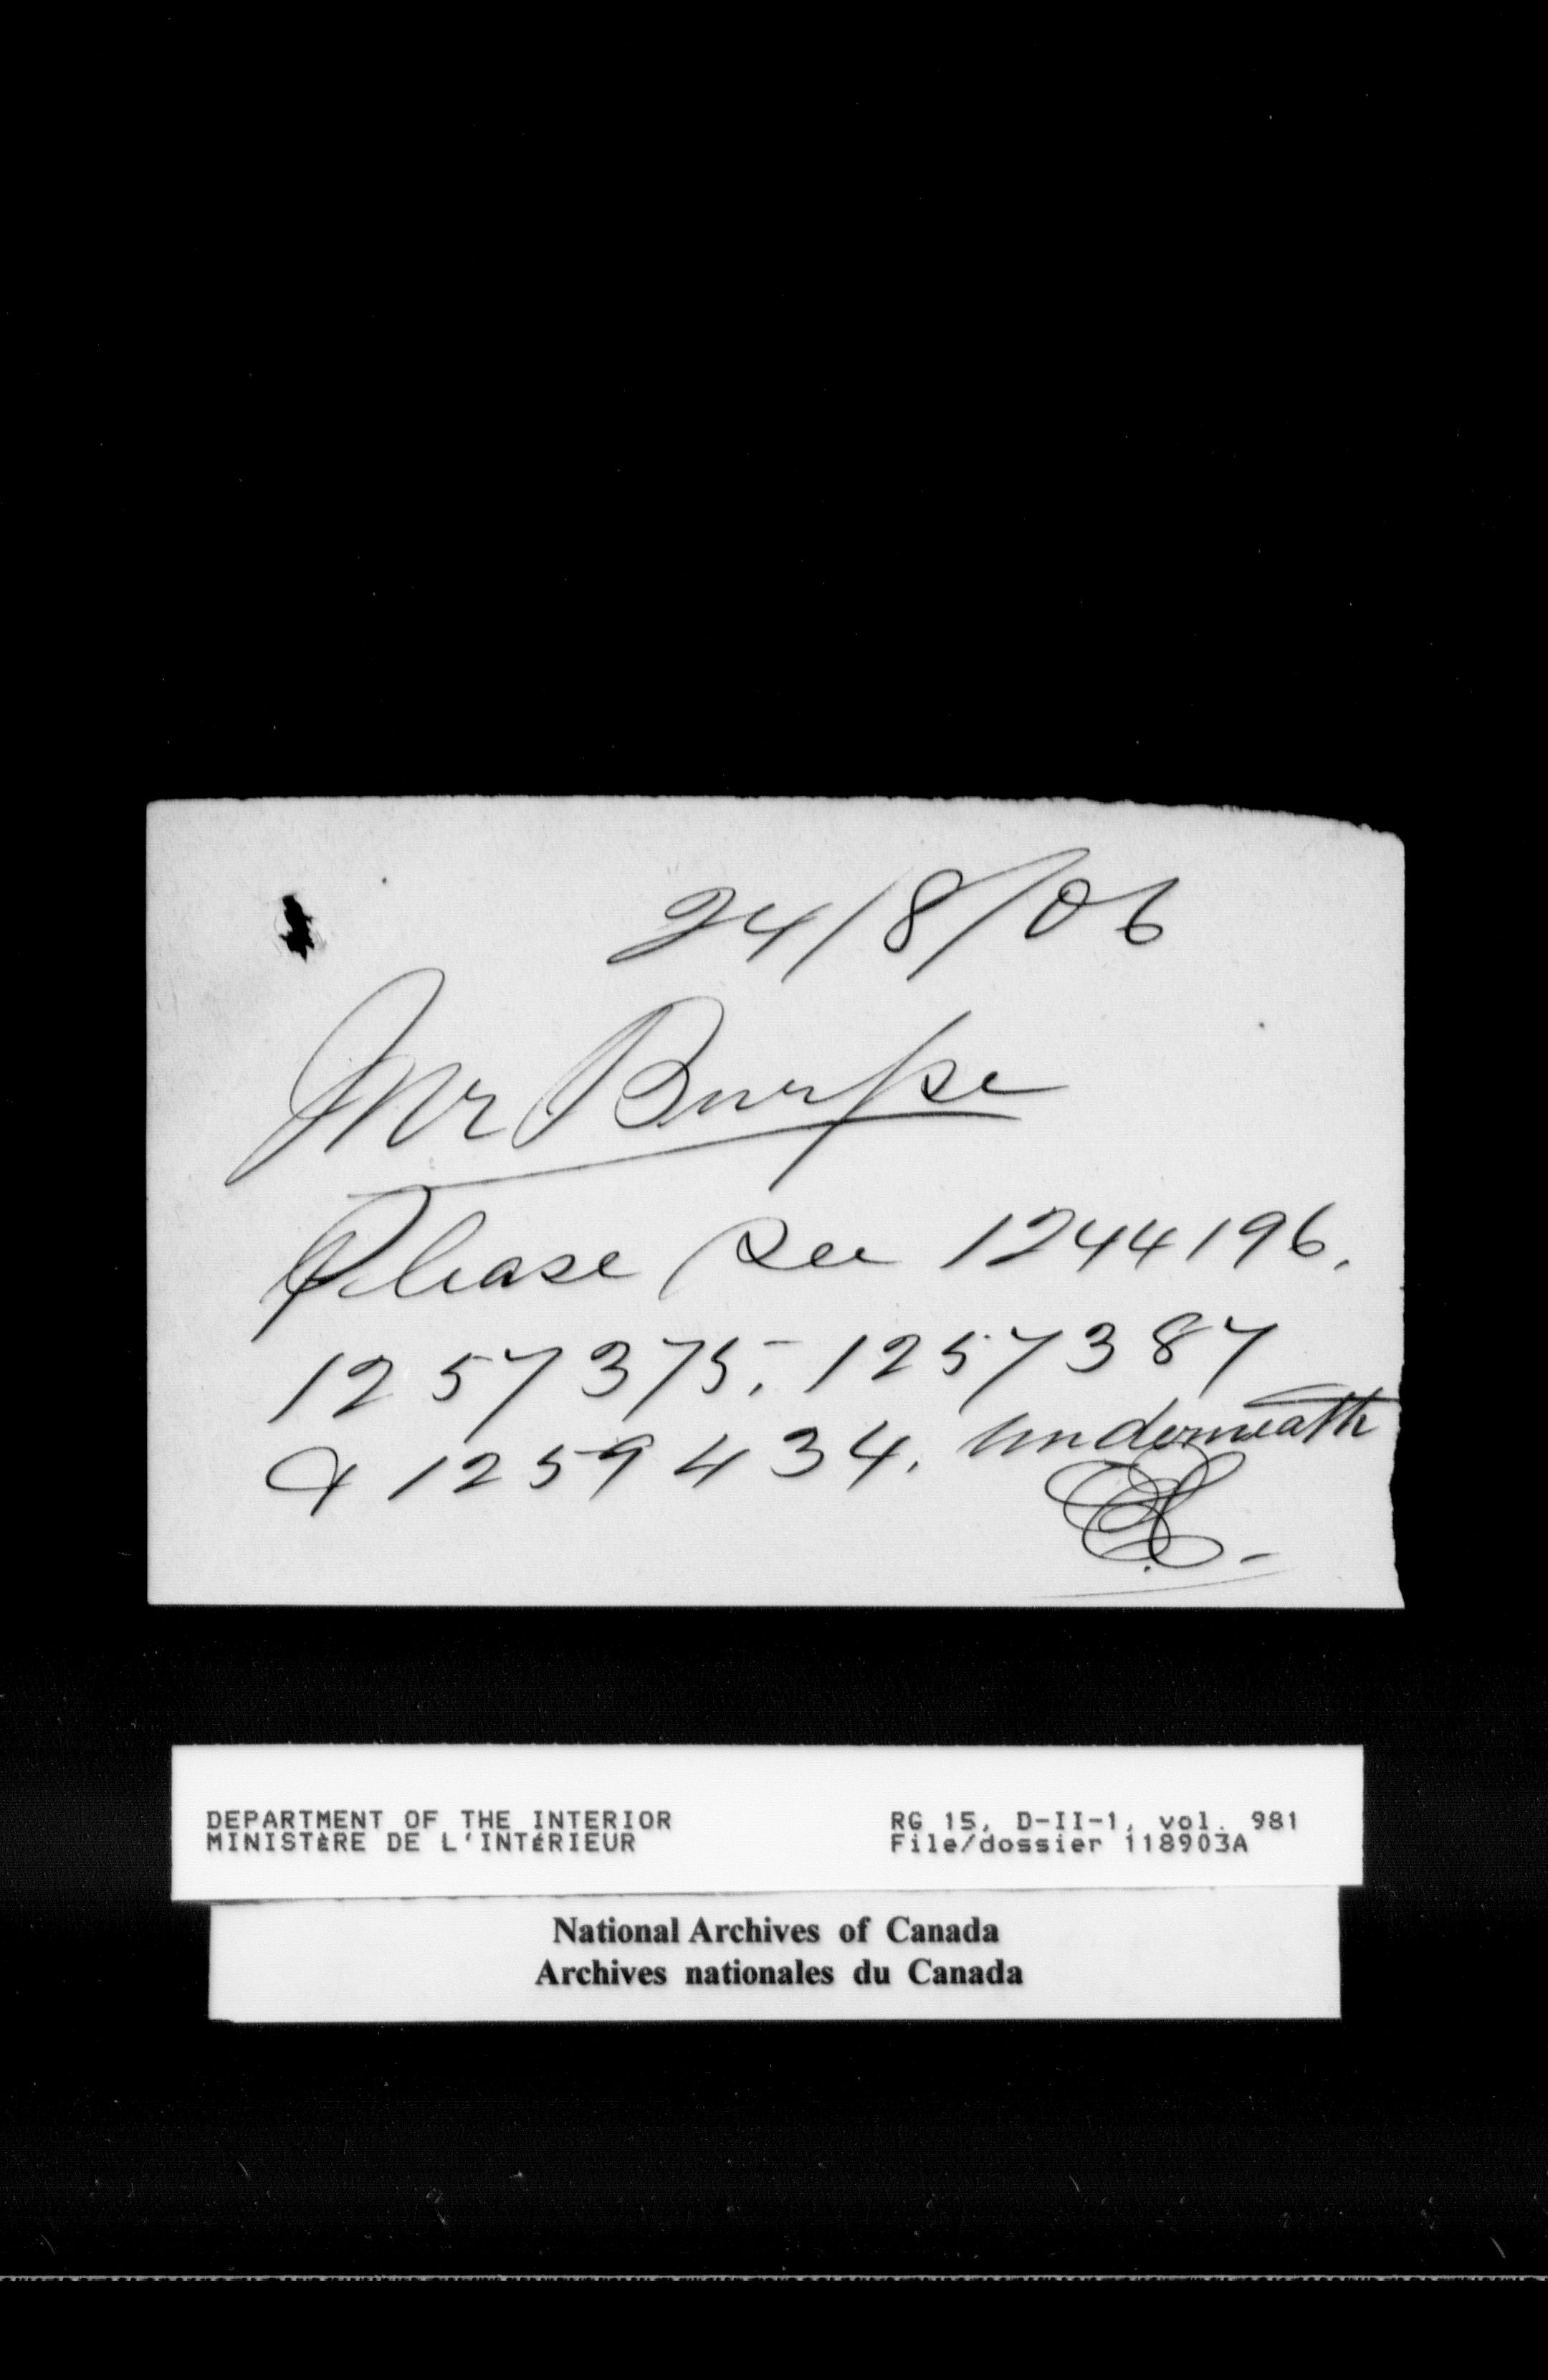 24/8/06
Mr Burpe
Please see 1244196.
1257375, 1257387
& 1259434. underneath
DEPARTMENT OF THE INTERIOR
MINISTÈRE DE L'INTÉRIEUR
RG 15, D-II-1, vol. 981
File/dossier 118903A
National Archives of Canada
Archives nationales du Canada